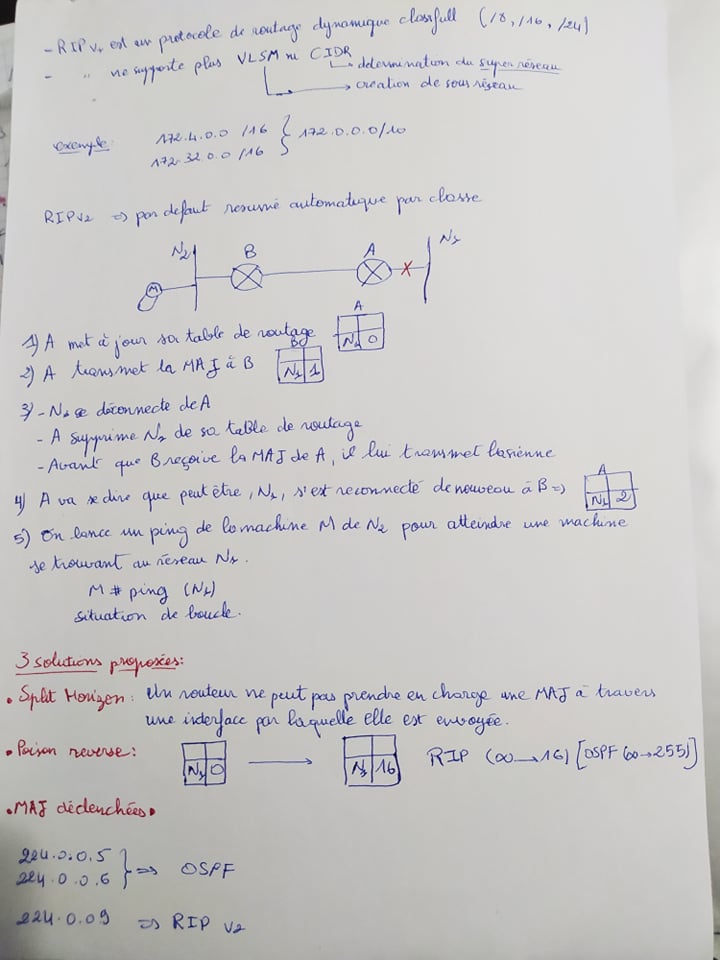 - RIPv1 est un protocole de routage dynamique classfull (/8, /16, /24)
- " ne supporte plus VLSM ni CIDR
détermination du super réseau
création de sous réseau
exemple: 172.4.0.0 /16
172.32.0.0 /16 } 172.0.0.0/10
RIPv2 => par defaut resumé automatique par classe
N2 B A N1
M
1) A met à jour sa table de routage A N1 0
2) A transmet la MAJ à B B N1 1
3) - N1 se déconnecte de A
- A supprime N1 de sa table de routage
- Avant que B reçoive la MAJ de A, il lui transmet la sienne
4) A va se dire que peut être, N1, s'est reconnecté de nouveau à B => A N1 2
5) On lance un ping de la machine M de N2 pour atteindre une machine
se trouvant au réseau N1.
M # ping (N1)
situation de boucle.
3 solutions proposées:
• Split Horizon: Un routeur ne peut pas prendre en charge une MAJ à travers
une interface par laquelle elle est envoyée.
• Poison reverse: N1 0 → N1 16 RIP (∞→16) [OSPF ∞→255)]
• MAJ déclenchées •
224.0.0.5
224.0.0.6 } => OSPF
224.0.09 => RIP v2